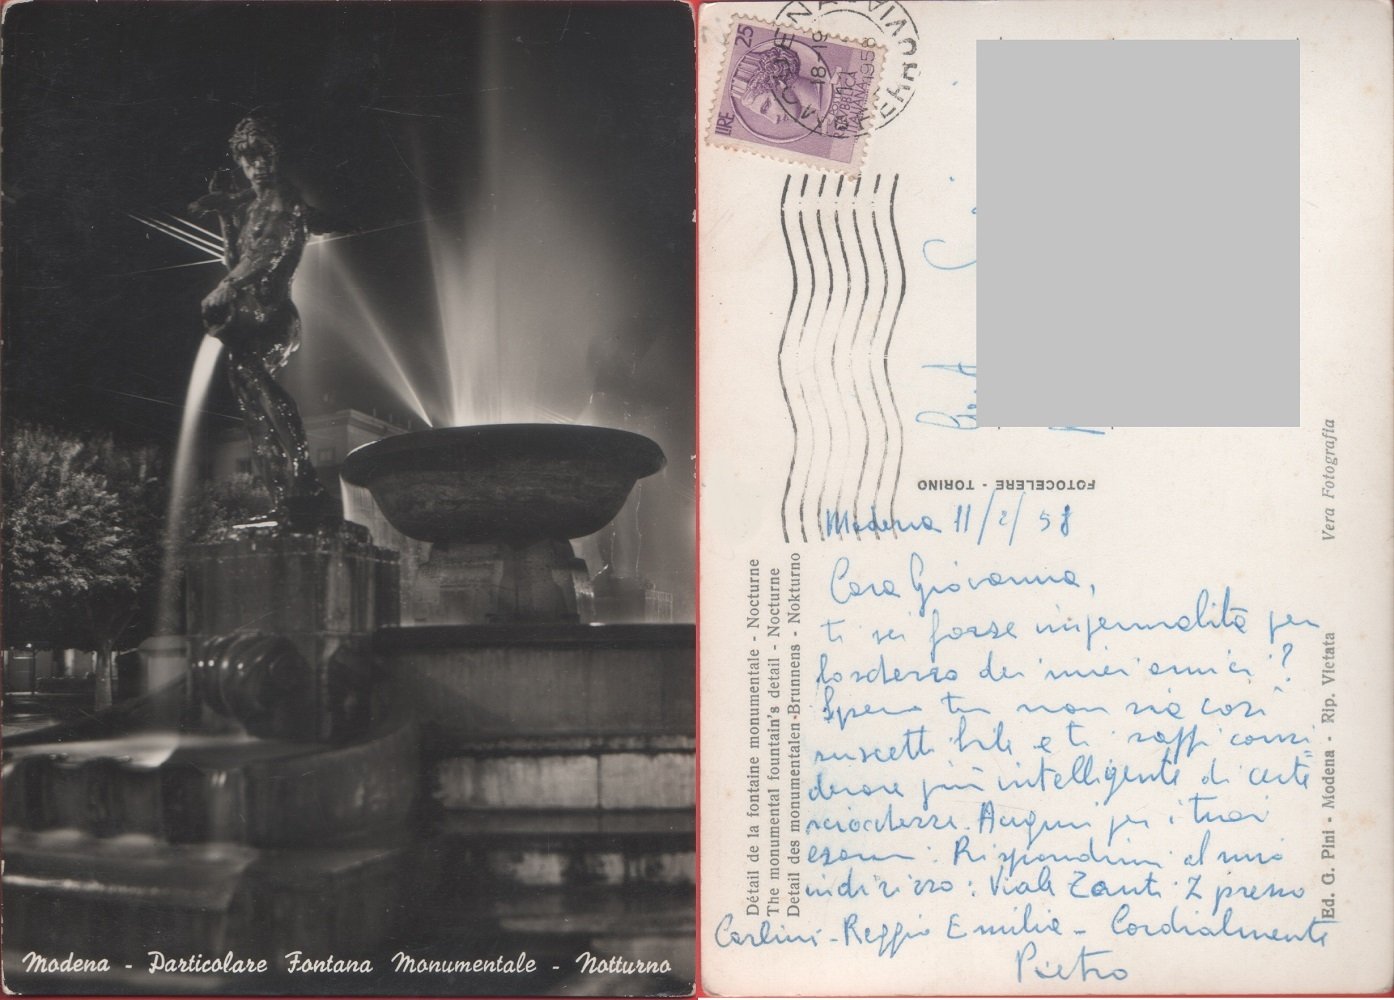 Modena - Particolare Fontana Monumentale - Notturno
LIRE 25
18-19
1958
REPUBBLICA
ITALIANA
FOTOCELERE - TORINO
Vera Fotografia
Ed. G. Pini - Modena - Rip. Vietata
Détail de la fontaine monumentale - Nocturne
The monumental fountain's detail - Nocturne
Detail des monumentalen-Brunnens - Nokturno
Modena 11/2/58
Cara Giovanna,
ti sei forse impermalita per
lo scherzo dei miei amici?
Spero tu non sia così
suscettibile e ti saffi consi-
derare più intelligente di certe
sciocchezze. Auguri per i tuoi
esami. Rispondimi al mio
indirizzo: Viale Zanti 2 presso
Carlini - Reggio Emilia - Cordialmente
Pietro